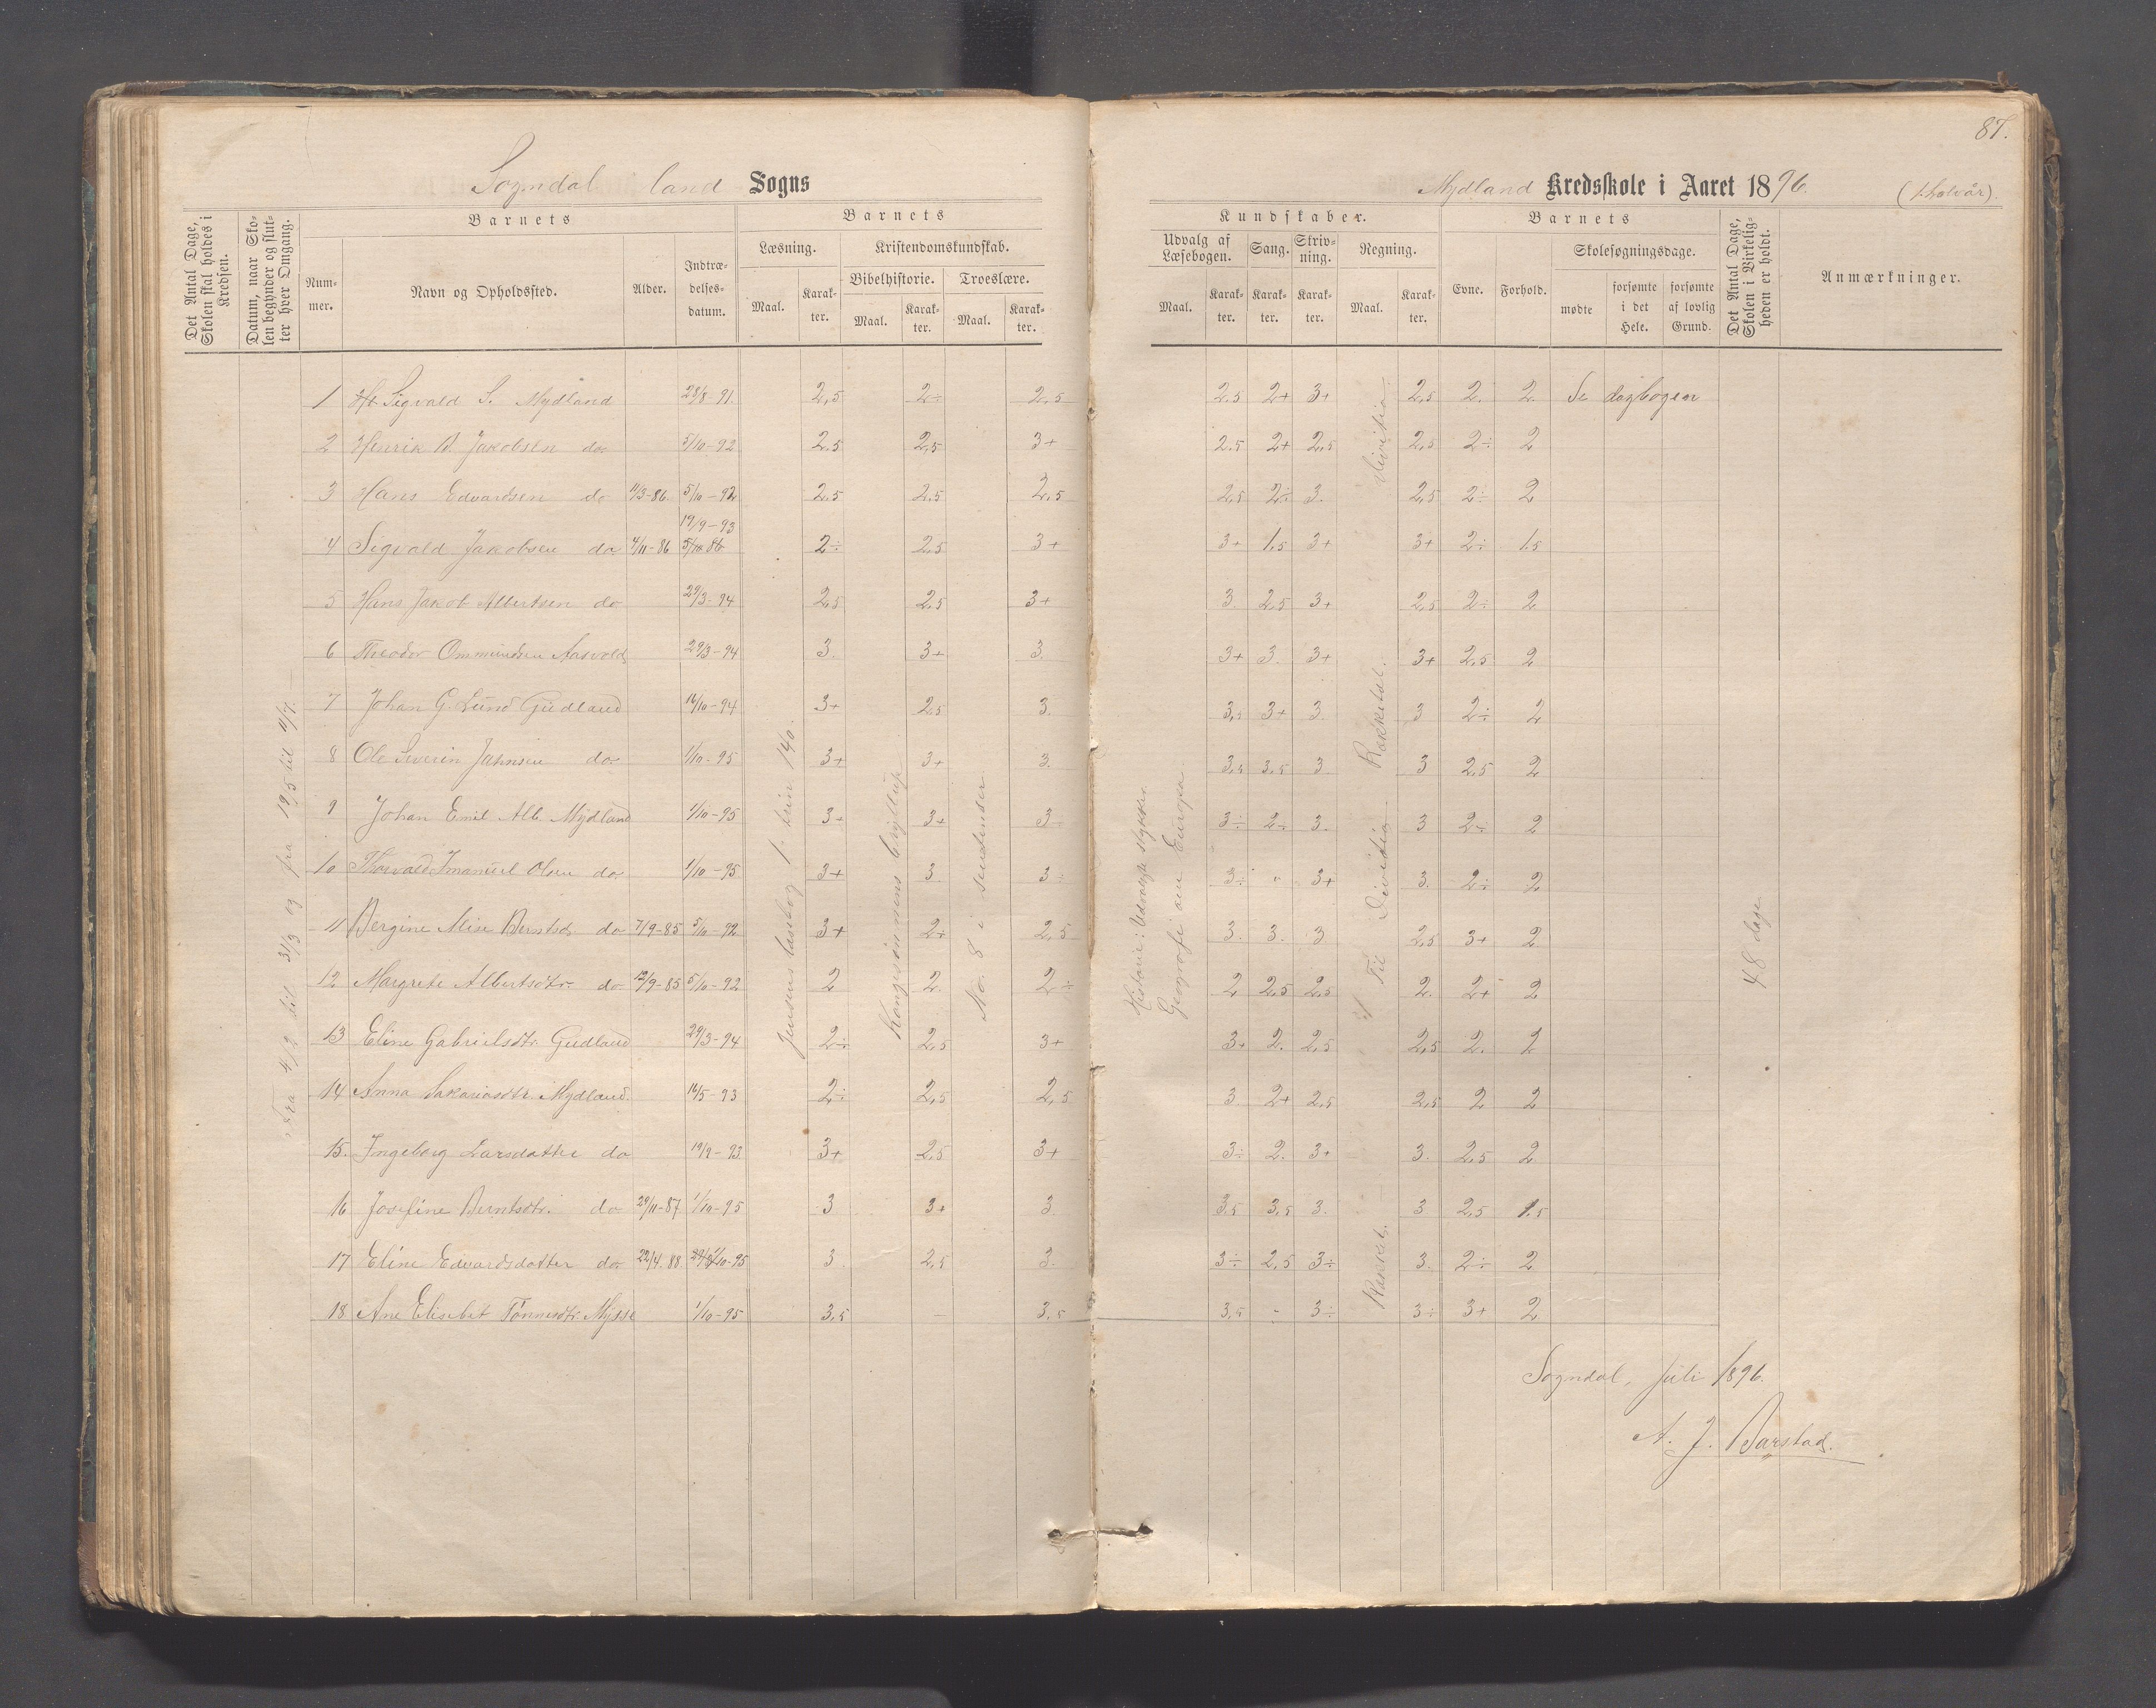 87.
Sogndal land Sogns
Mydland Kredsskole i Aaret 1896. (1. halvår).
Det Antal Dage, Skolen skal holdes i Kredsen.
Datum, naar Skolen begynder og slutter hver Omgang.
Barnets
Nummer.
Navn og Opholdssted.
Alder.
Indtrædelsesdatum.
Barnets
Læsning.
Kristendomskundskab.
Bibelhistorie.
Troeslære.
Maal. Karakter. Maal. Karakter. Maal. Karakter.
Kundskaber.
Udvalg af Læsebogen.
Sang.
Skrivning.
Regning.
Maal. Karakter. Karakter. Karakter. Maal. Karakter.
Barnets
Evne.
Forhold.
Skolesøgningsdage.
mødte
forsømte i det Hele.
forsømte af lovlig Grund.
Det Antal Dage, Skolen i Virkeligheden er holdt.
Anmærkninger.
1 Sigvald S. Mydland 28/8-91. 2,5 2÷ 2,5 2.5 2+ 3+ 2,5 2. 2. Se dagbogen
2 Henrik B. Jakobsen do 5/10-92 2.5 2,5 3+ 2.5 2+ 2,5 2,5 2÷ 2
3 Hans Edvardsen do 11/3-86. 5/10-92 2.5 2.5 2,5 2,5 2÷ 3. 2,5 2÷ 2
19/9-93
4 Sigvald Jakobsen do 4/11-86 2÷ 2.5 3+ 3+ 1.5 3+ 3+ 2÷ 1.5
5 Hans Jakob Albertsen do 29/3-94 2,5 2.5 3+ 3. 2,5 3+ 2,5 2÷ 2
6 Theodor Ommundsen Aasvold 29/3-94 3. 3+ 3. 3+ 3. 3+ 3+ 2,5 2
7 Johan G. Lund Gudland 16/10-94 3+ 2,5 3. 3,5 3+ 3. 3 2÷ 2
8 Ole Severin Jahnsen do 1/10-95 3+ 3+ 3. 3,5 3,5 3 3 2,5 2
9 Johan Emil Alb. Mydland 1/10-95 3+ 3+ 3 3÷ 2÷ 3. 3 2÷ 2
10 Thorvald Imanuel Olsen do 1/10-95 3+ 3. 3÷ 3÷ " 3+ 3. 2÷ 2
11 Bergine Mise Berntsdt. do 7/9-85 5/10-92 3+ 2÷ 2,5 3. 3. 3 2,5 3+ 2
12 Margrete Albertsdtr. do 12/9-85 5/10-92 2 2. 2÷ 2 2,5 2,5 2. 2+ 2
13 Eline Gabrielsdtr. Gudland 29/3-94 2÷ 2,5 3+ 3+ 2. 2,5 2,5 2. 2
14 Anna Sakariasdtr. Mydland. 16/5-93 2÷ 2,5 2,5 3. 2+ 2,5 2,5 2 2
15. Ingeborg Larsdatter do 19/9-93. 3+ 2,5 3+ 3÷ 2. 3+ 3. 2,5 2
16 Josefine Berntsdtr. do 29/11-87. 1/10-95 3 3+ 3. 3,5 3,5 3. 3 2,5 1.5
17 Eline Edvardsdatter do 22/4.88 1/10-95 3 2,5 3. 3÷ 2,5 3÷ 3. 2÷ 2
18 Ane Elisebet Tønnesdtr. Mysse 1/10-95 3,5 — 3,5 3,5 - 3÷ 3÷ 3+ 2
Fra 4/2 til 31/3 og fra 19/5 til 11/7.
Jensens læsebog 1. trin 140.
Kongesønnens bryllup
No. 8 i sentenser
Historie: Udvalgte stykker.
Geografi om Europa
Til Divisio
Division
48 dage
Sogndal, juli 1896.
A. J. Barstad.